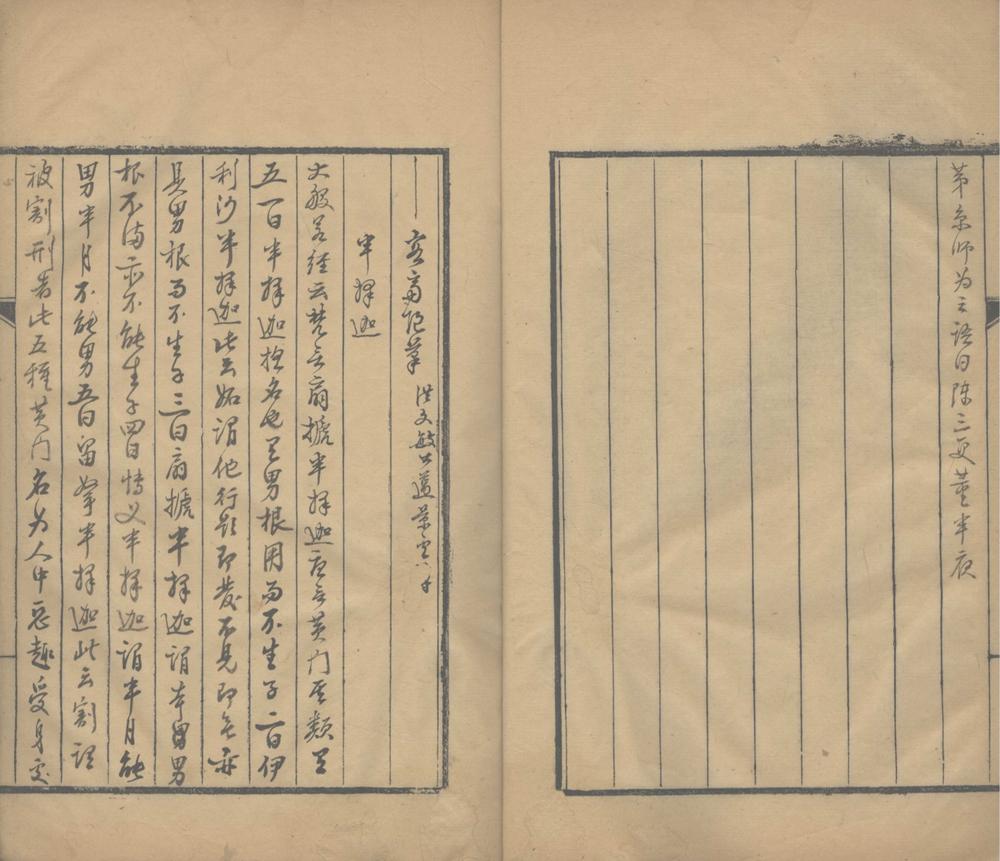 苐京師為之語曰陳三更董半夜
容齋隨筆 洪文敏公邁景盧
半擇迦
大般若經云梵言扇搋半擇迦唐言黃門其類有
五一曰半擇迦捴名也有男根用而不生子二曰伊
利沙半擇迦此云妬謂他行欲即發不見即無亦
具男根而不生子三曰扇搋半擇迦謂本男男
根不滿亦不能生子四曰博叉半擇迦謂半月能
男半月不能男五曰留拏半擇迦此云割謂
被割刑者此五種黃門名為人中惡趣受身處